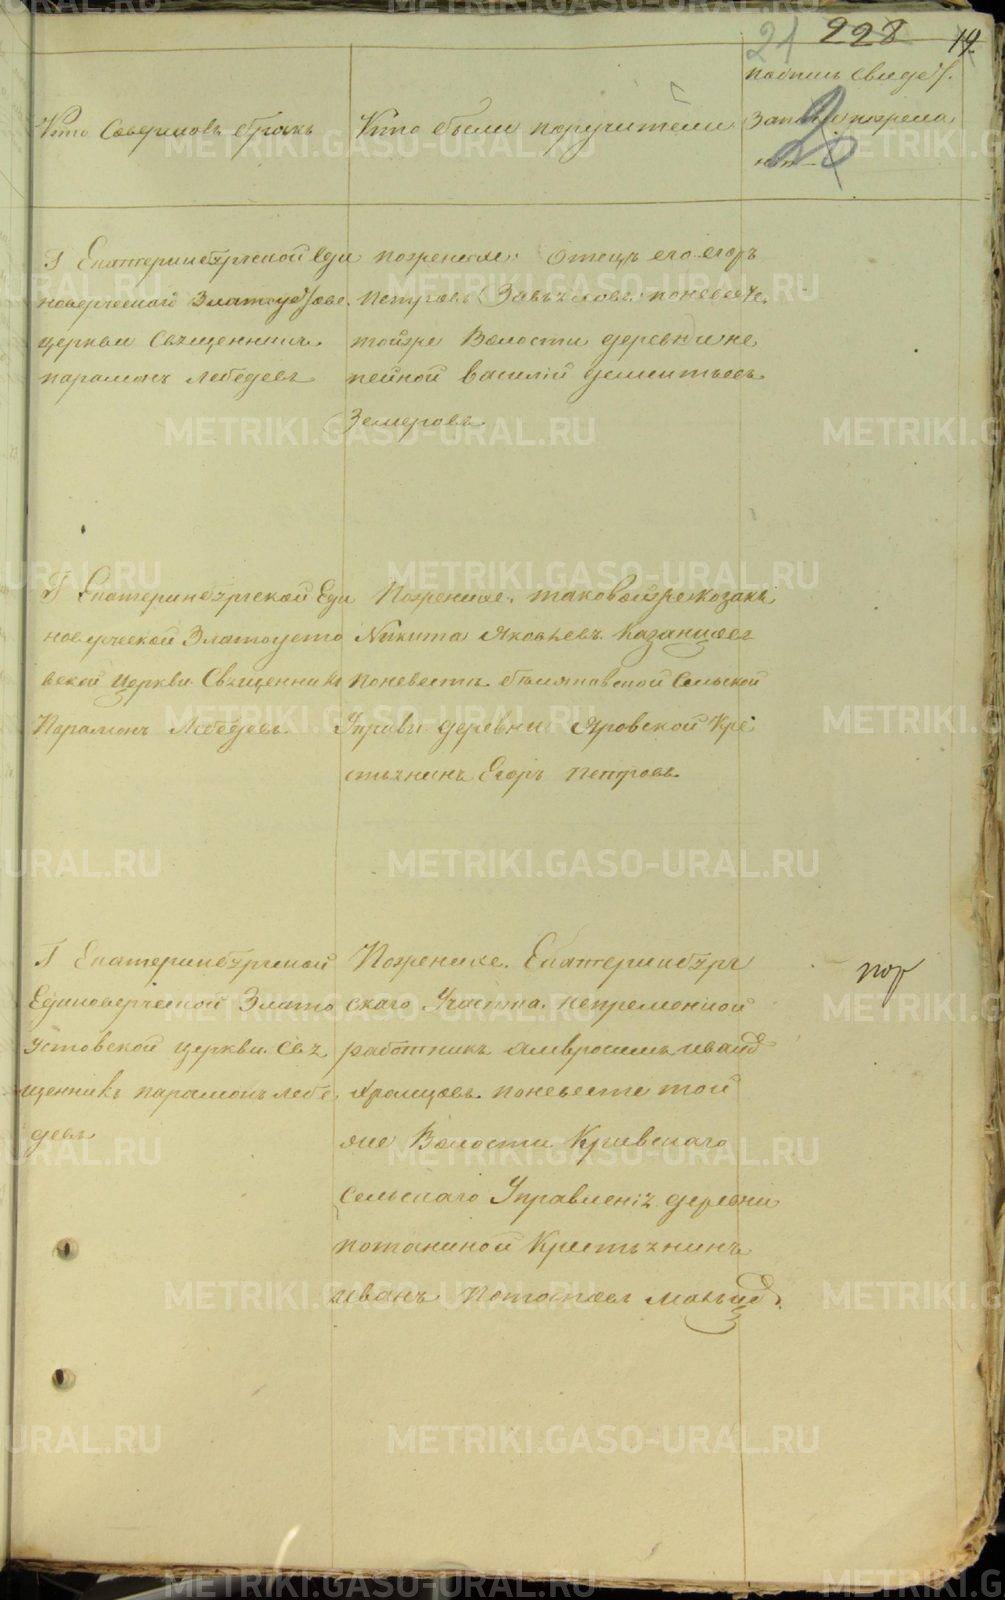 21 228 19
Кто Совершилъ бракъ
Кто были поручители
подпись Свидет.
Записи по жела
нию
Г Екатеринбургской Еди
новерческой Златоустове
церкви Священникъ
парамонъ лебедевъ
пожениxе. Отецъ его егоръ
Петровъ поневесте
тойже Волости деревни
Василий дементьевъ
Земеровъ
Г Екатеринбургской Еди
новерческой Златоусто
вской Церкви Священникъ
Парамонъ Лебедевъ
Пожениxе. таковойже козакъ
Никита Яковлевъ Казанцевъ
Поневесте Сельской
Управы деревни Яровской Кре
стьянинъ Егоръ Петровъ
Г Екатеринбургской
Единоверческой Злато
устовской церкви Свя
щенникъ парамонъ лебе
девъ
Пожениxе. Екатеринбург
скаго Участка непременной
работникъ Амвросимъ иванов
Храмцовъ поневесте той
же Волости Кривскаго
Сельскаго Управления деревни
потаниной Крестьянинъ
иванъ
пор
METRIKI.GASO-URAL.RU